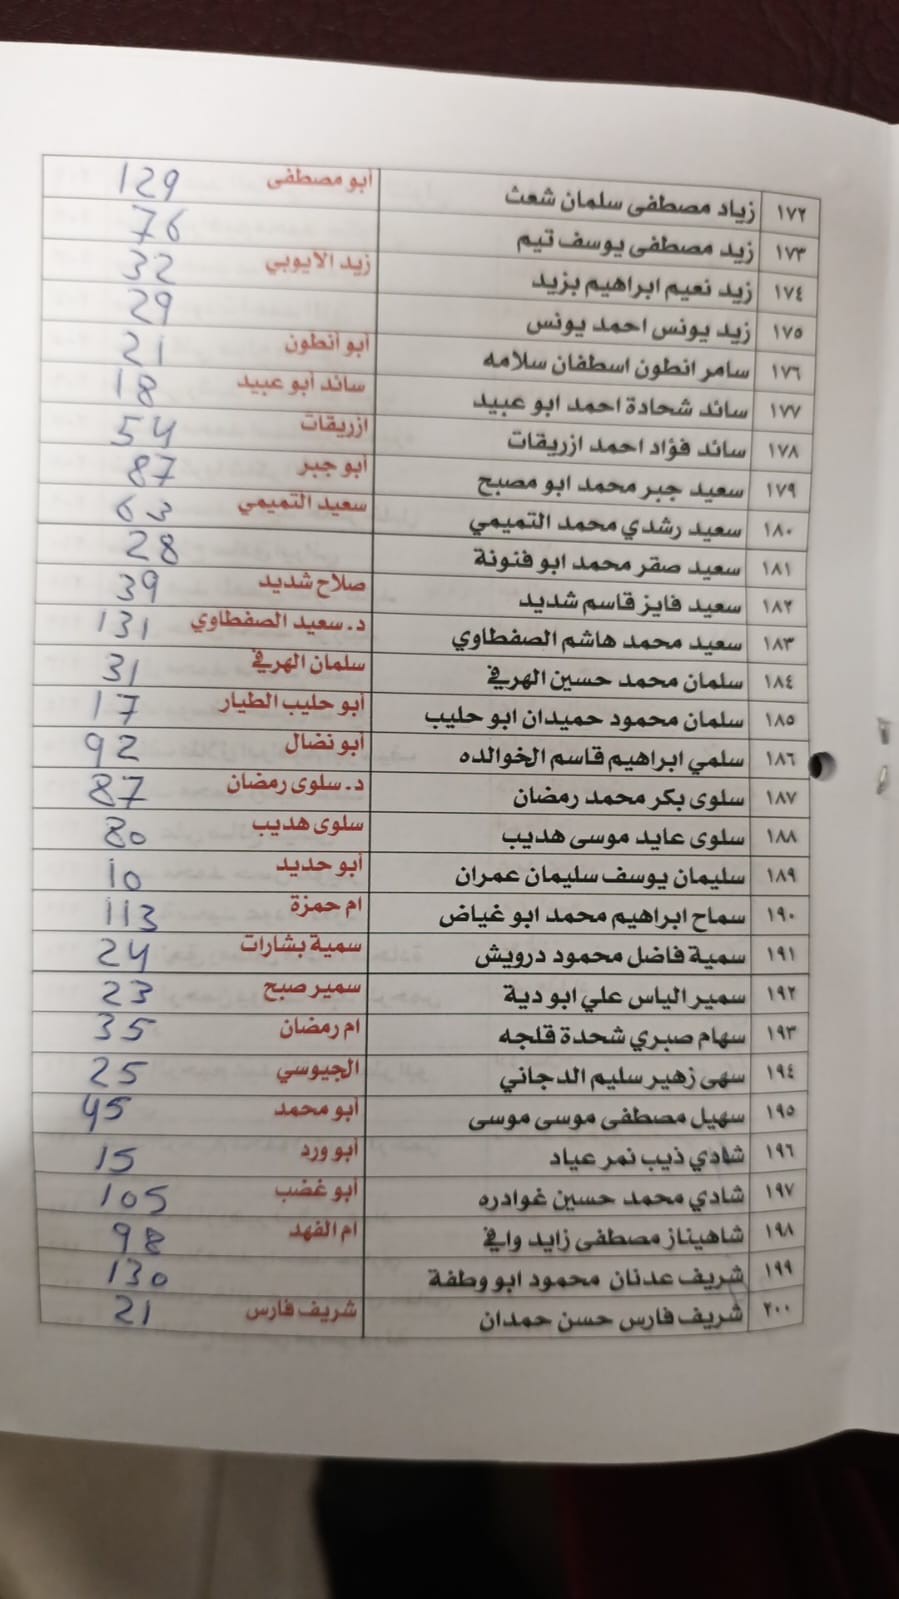 ١٧٢ زياد مصطفى سلمان شعث أبو مصطفى 129
١٧٣ زيد مصطفى يوسف تيم 76
١٧٤ زيد نعيم ابراهيم بزيد زيد الايوبي 32
١٧٥ زيد يونس احمد يونس 29
١٧٦ سامر انطون اسطفان سلامه أبو أنطون 21
١٧٧ سائد شحادة احمد ابو عبيد سائد أبو عبيد 18
١٧٨ سائد فؤاد احمد ازريقات ازريقات 54
١٧٩ سعيد جبر محمد ابو مصبح أبو جبر 87
١٨٠ سعيد رشدي محمد التميمي سعيد التميمي 63
١٨١ سعيد صقر محمد ابو فنونة 28
١٨٢ سعيد فايز قاسم شديد صلاح شديد 39
١٨٣ سعيد محمد هاشم الصفطاوي د. سعيد الصفطاوي 131
١٨٤ سلمان محمد حسين الهرفي سلمان الهرفي 31
١٨٥ سلمان محمود حميدان ابو حليب أبو حليب الطيار 17
١٨٦ سلمي ابراهيم قاسم الخوالده أبو نضال 92
١٨٧ سلوى بكر محمد رمضان د. سلوى رمضان 87
١٨٨ سلوى عايد موسى هديب سلوى هديب 80
١٨٩ سليمان يوسف سليمان عمران أبو حديد 10
١٩٠ سماح ابراهيم محمد ابو غياض ام حمزة 113
١٩١ سمية فاضل محمود درويش سمية بشارات 24
١٩٢ سمير الياس علي ابو دية سمير صبح 23
١٩٣ سهام صبري شحدة قلجه ام رمضان 35
١٩٤ سهى زهير سليم الدجاني الجيوسي 25
١٩٥ سهيل مصطفى موسى موسى أبو محمد 45
١٩٦ شادي ذيب نمر عياد أبو ورد 15
١٩٧ شادي محمد حسين غوادره أبو غضب 105
١٩٨ شاهيناز مصطفى زايد وافي ام الفهد 98
١٩٩ شريف عدنان محمود ابو وطفة 130
٢٠٠ شريف فارس حسن حمدان شريف فارس 21